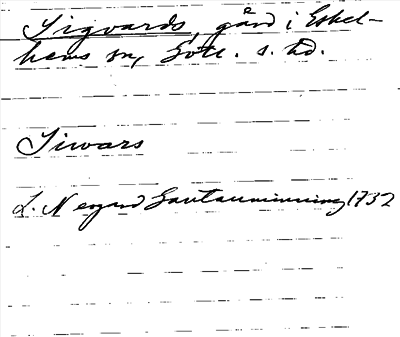 Sigvards, gård i Eskel-
hems sn, Gotl. s. hd.
Siwars
L. Nergard Gautauminning 1732